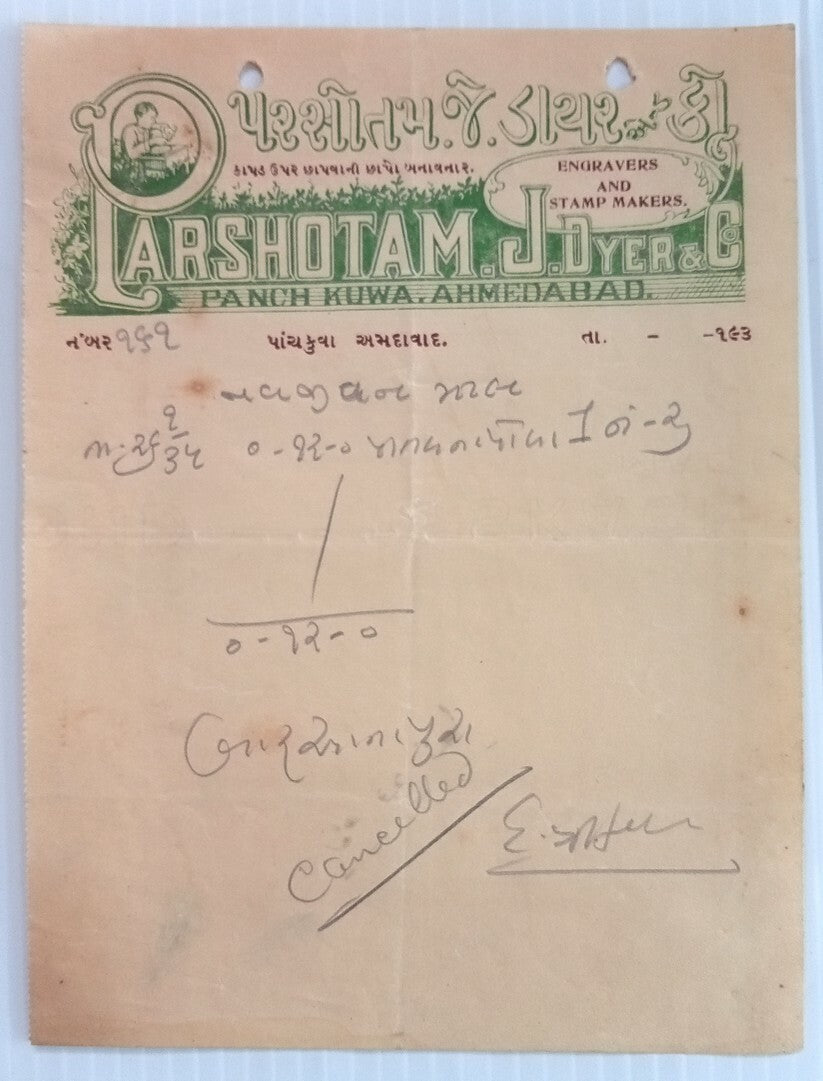 પરસોતમ.જે.ડાયર કો
કાપડ ઉપર છાપવાની છાપો બનાવનાર.
ENGRAVERS
AND
STAMP MAKERS.
PARSHOTAM. J. DYER & Co
PANCH KUWA. AHMEDABAD.
નંબર ૧૬૧ પાંચકુવા અમદાવાદ. તા. - -૧૯૩
નવજીવન
૦-૧૨-૦
૦-૧૨-૦
બાર આના પુરા
Cancelled